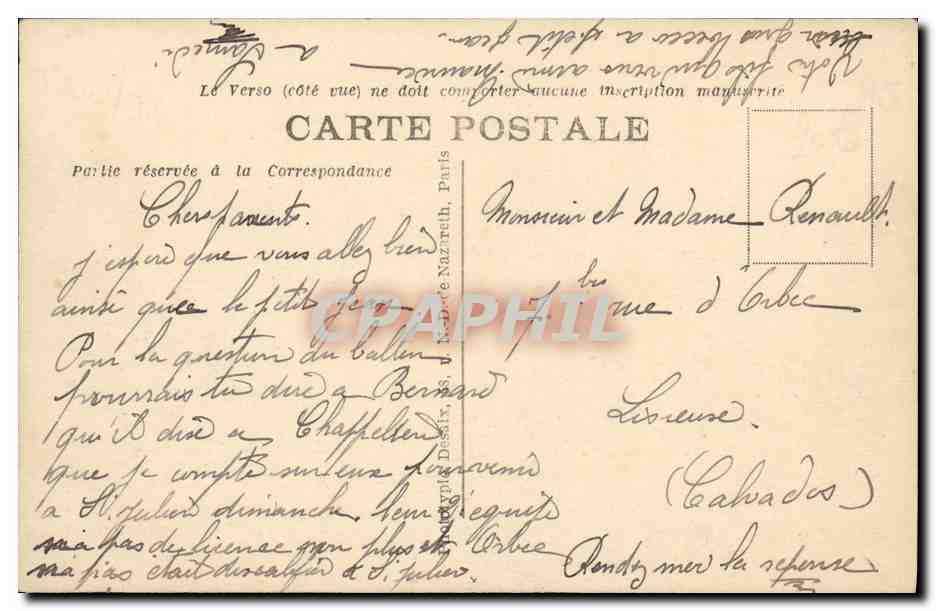 Le Verso (côté vue) ne doit comporter aucune inscription manuscrite
CARTE POSTALE
Partie réservée à la Correspondance
Chers parents.
j'espère que vous allez bien
ainsi que le petit Jean.
Pour la question du ballon
pourrais tu dire a Bernard
qu'il dise a
que je compte sur eux pour venir
a St Julien dimanche. leur 2e equipe
n'a pas de licence non plus et Orbec
n'a pas était a St Julien.
Phototypie Desaix, N.-D.-de-Nazareth, Paris
Monsieur et Madame Renault.
7 bis rue d'Orbec
Lisieuse.
(Calvados)
Rendez mer la reponse
Votre fils qui vous aime Maurice
gros becco a petit Jean.
a Samedi
CPAPHIL